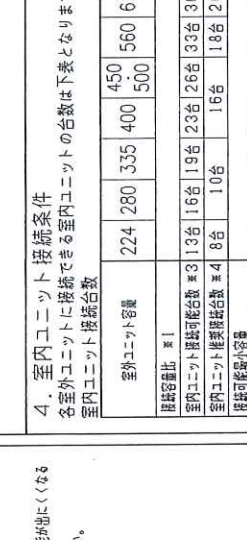 能が出にくくなる
い。
4. 室内ユニット接続条件
各室外ユニットに接続できる室内ユニットの台数は下表となりま
室内ユニット接続台数
室外ユニット容量 224 280 335 400 450・500 560 6
接続容量比 ※1
室内ユニット接続可能台数 ※3 13台 16台 19台 23台 26台 33台 3
室内ユニット推奨接続台数 ※4 8台 10台 16台 18台 2
接続可能最小容量